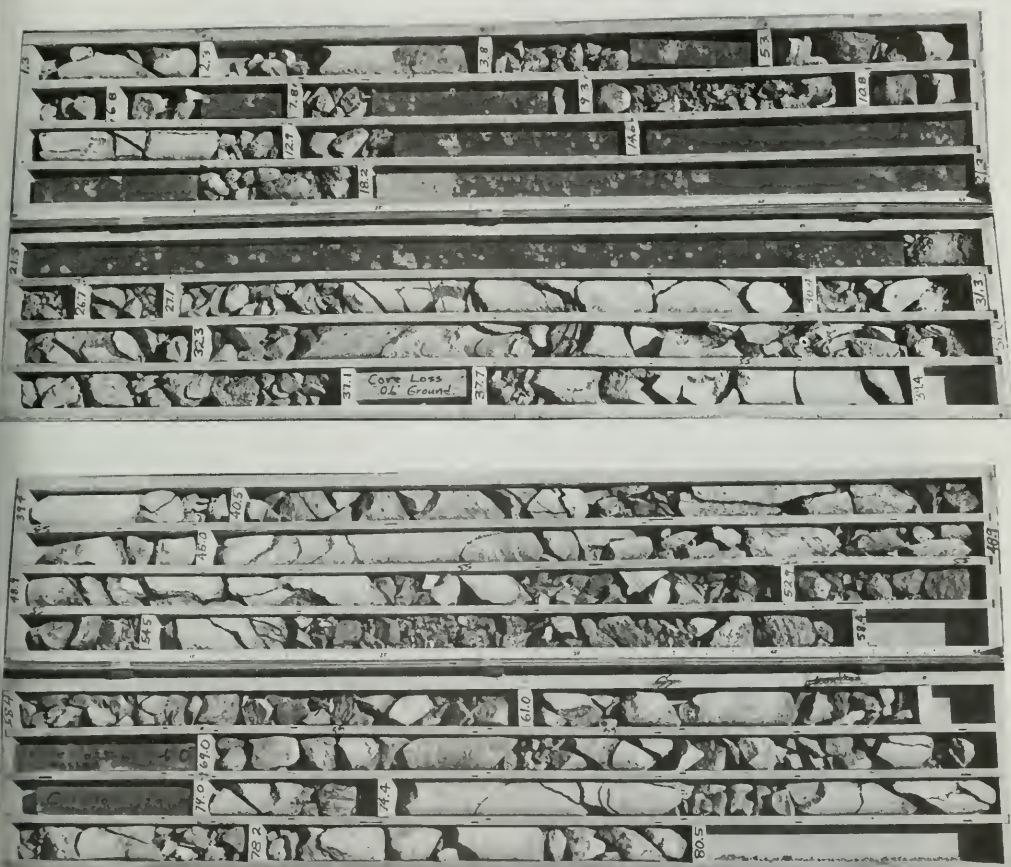 1.3
2.3
3.8
5.3
6.8
7.8
9.3
10.8
12.9
14.6
18.2
21.3
21.3
26.7
27.1
30.4
31.3
32.3
37.1
Core Loss
0.6 Ground.
37.7
39.4
39.4
40.5
45.0
48.9
48.9
52.9
54.5
58.4
58.4
61.0
69.0
74.0
74.4
78.2
80.5